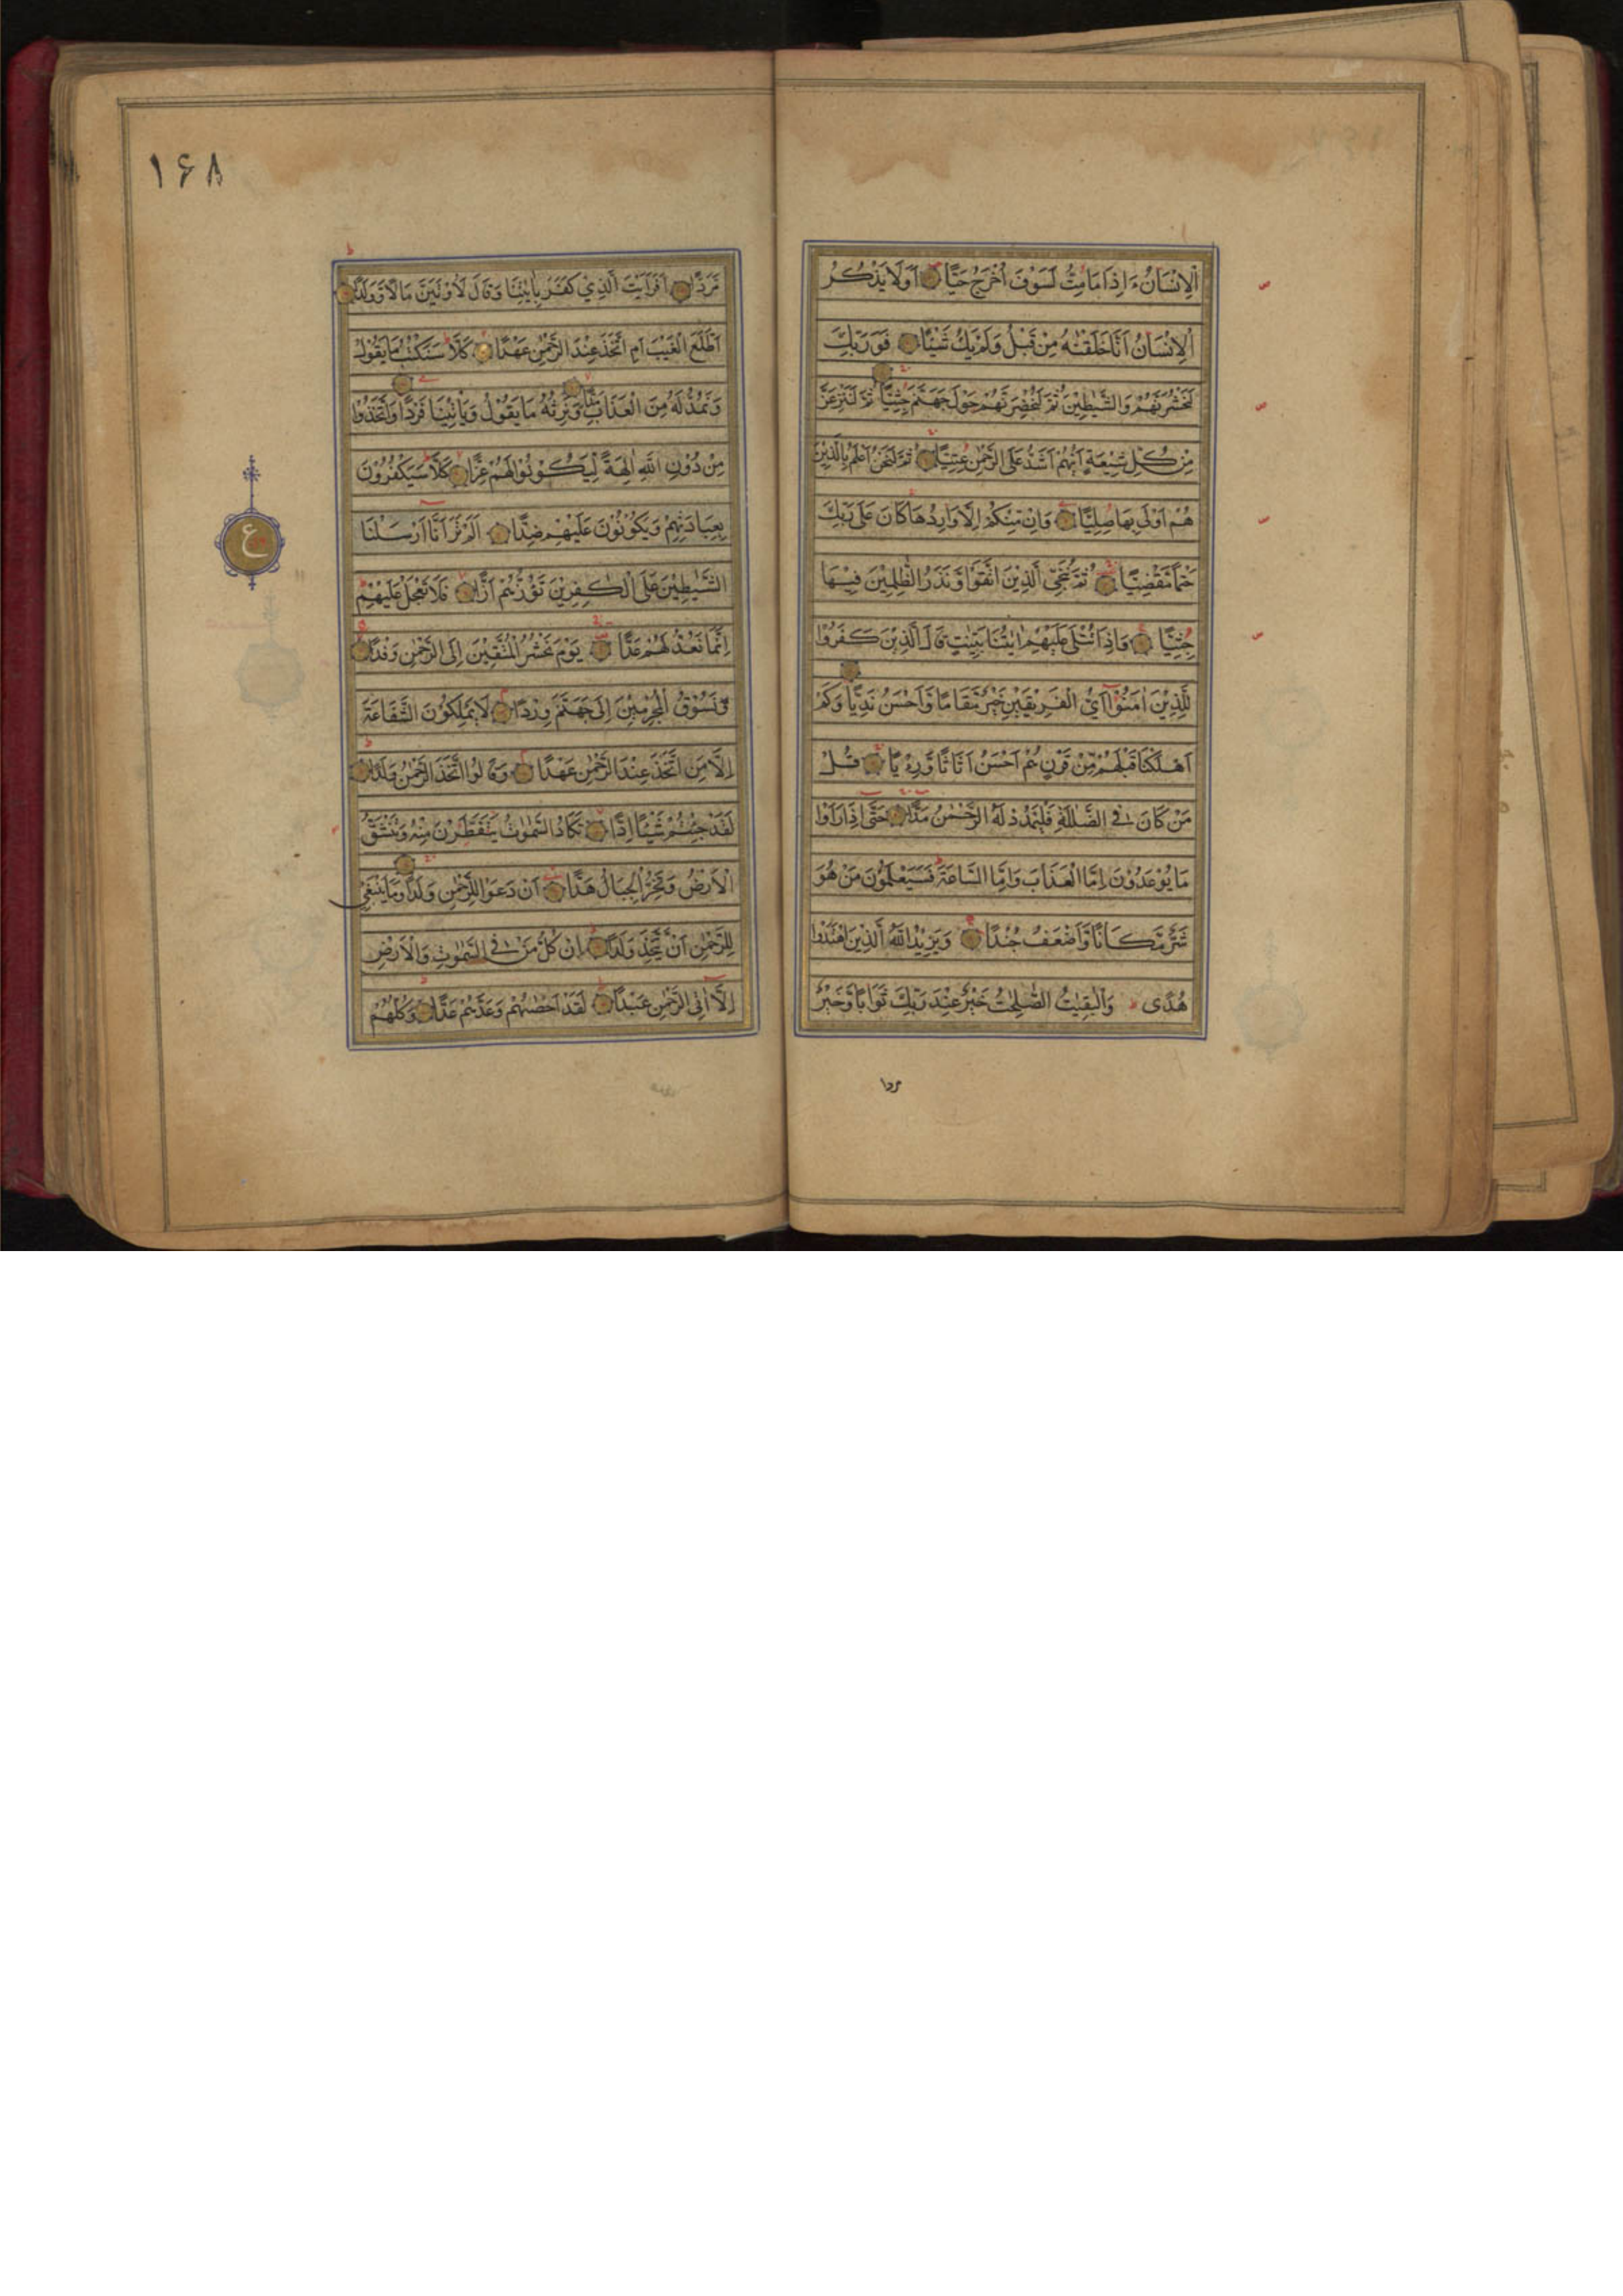 الْاِنْسَانُ ءَاِذَا مَا مِتُّ لَسَوْفَ اُخْرَجُ حَيًّا اَوَلَا يَذْكُرُ
الْاِنْسَانُ اَنَّا خَلَقْنٰهُ مِنْ قَبْلُ وَلَمْ يَكُ شَيْئًا فَوَرَبِّكَ
لَنَحْشُرَنَّهُمْ وَالشَّيٰطِيْنَ ثُمَّ لَنُحْضِرَنَّهُمْ حَوْلَ جَهَنَّمَ جِثِيًّا ثُمَّ لَنَنْزِعَنَّ
مِنْ كُلِّ شِيْعَةٍ اَيُّهُمْ اَشَدُّ عَلَى الرَّحْمٰنِ عِتِيًّا ثُمَّ لَنَحْنُ اَعْلَمُ بِالَّذِيْنَ
هُمْ اَوْلٰى بِهَا صِلِيًّا وَاِنْ مِّنْكُمْ اِلَّا وَارِدُهَا كَانَ عَلٰى رَبِّكَ
حَتْمًا مَّقْضِيًّا ثُمَّ نُنَجِّي الَّذِيْنَ اتَّقَوْا وَّنَذَرُ الظّٰلِمِيْنَ فِيْهَا
جِثِيًّا وَاِذَا تُتْلٰى عَلَيْهِمْ اٰيٰتُنَا بَيِّنٰتٍ قَالَ الَّذِيْنَ كَفَرُوْا
لِلَّذِيْنَ اٰمَنُوْا اَيُّ الْفَرِيْقَيْنِ خَيْرٌ مَّقَامًا وَّاَحْسَنُ نَدِيًّا وَكَمْ
اَهْلَكْنَا قَبْلَهُمْ مِّنْ قَرْنٍ هُمْ اَحْسَنُ اَثَاثًا وَّرِءْيًا قُلْ
مَنْ كَانَ فِي الضَّلٰلَةِ فَلْيَمْدُدْ لَهُ الرَّحْمٰنُ مَدًّا حَتّٰى اِذَا رَاَوْا
مَا يُوْعَدُوْنَ اِمَّا الْعَذَابَ وَاِمَّا السَّاعَةَ فَسَيَعْلَمُوْنَ مَنْ هُوَ
شَرٌّ مَّكَانًا وَّاَضْعَفُ جُنْدًا وَيَزِيْدُ اللّٰهُ الَّذِيْنَ اهْتَدَوْا
هُدًى وَالْبٰقِيٰتُ الصّٰلِحٰتُ خَيْرٌ عِنْدَ رَبِّكَ ثَوَابًا وَّخَيْرٌ
مردا
۱۶۸
مَّرَدًّا اَفَرَاَيْتَ الَّذِيْ كَفَرَ بِاٰيٰتِنَا وَقَالَ لَاُوْتَيَنَّ مَالًا وَّوَلَدًا
اَطَّلَعَ الْغَيْبَ اَمِ اتَّخَذَ عِنْدَ الرَّحْمٰنِ عَهْدًا كَلَّا سَنَكْتُبُ مَا يَقُوْلُ
وَنَمُدُّ لَهُ مِنَ الْعَذَابِ مَدًّا وَّنَرِثُهُ مَا يَقُوْلُ وَيَاْتِيْنَا فَرْدًا وَاتَّخَذُوْا
مِنْ دُوْنِ اللّٰهِ اٰلِهَةً لِّيَكُوْنُوْا لَهُمْ عِزًّا كَلَّا سَيَكْفُرُوْنَ
بِعِبَادَتِهِمْ وَيَكُوْنُوْنَ عَلَيْهِمْ ضِدًّا اَلَمْ تَرَ اَنَّا اَرْسَلْنَا
الشَّيٰطِيْنَ عَلَى الْكٰفِرِيْنَ تَؤُزُّهُمْ اَزًّا فَلَا تَعْجَلْ عَلَيْهِمْ
اِنَّمَا نَعُدُّ لَهُمْ عَدًّا يَوْمَ نَحْشُرُ الْمُتَّقِيْنَ اِلَى الرَّحْمٰنِ وَفْدًا
وَّنَسُوْقُ الْمُجْرِمِيْنَ اِلٰى جَهَنَّمَ وِرْدًا لَا يَمْلِكُوْنَ الشَّفَاعَةَ
اِلَّا مَنِ اتَّخَذَ عِنْدَ الرَّحْمٰنِ عَهْدًا وَقَالُوا اتَّخَذَ الرَّحْمٰنُ وَلَدًا
لَقَدْ جِئْتُمْ شَيْئًا اِدًّا تَكَادُ السَّمٰوٰتُ يَتَفَطَّرْنَ مِنْهُ وَتَنْشَقُّ
الْاَرْضُ وَتَخِرُّ الْجِبَالُ هَدًّا اَنْ دَعَوْا لِلرَّحْمٰنِ وَلَدًا وَمَا يَنْبَغِيْ
لِلرَّحْمٰنِ اَنْ يَّتَّخِذَ وَلَدًا اِنْ كُلُّ مَنْ فِي السَّمٰوٰتِ وَالْاَرْضِ
اِلَّا اٰتِي الرَّحْمٰنِ عَبْدًا لَقَدْ اَحْصٰىهُمْ وَعَدَّهُمْ عَدًّا وَكُلُّهُمْ
ع